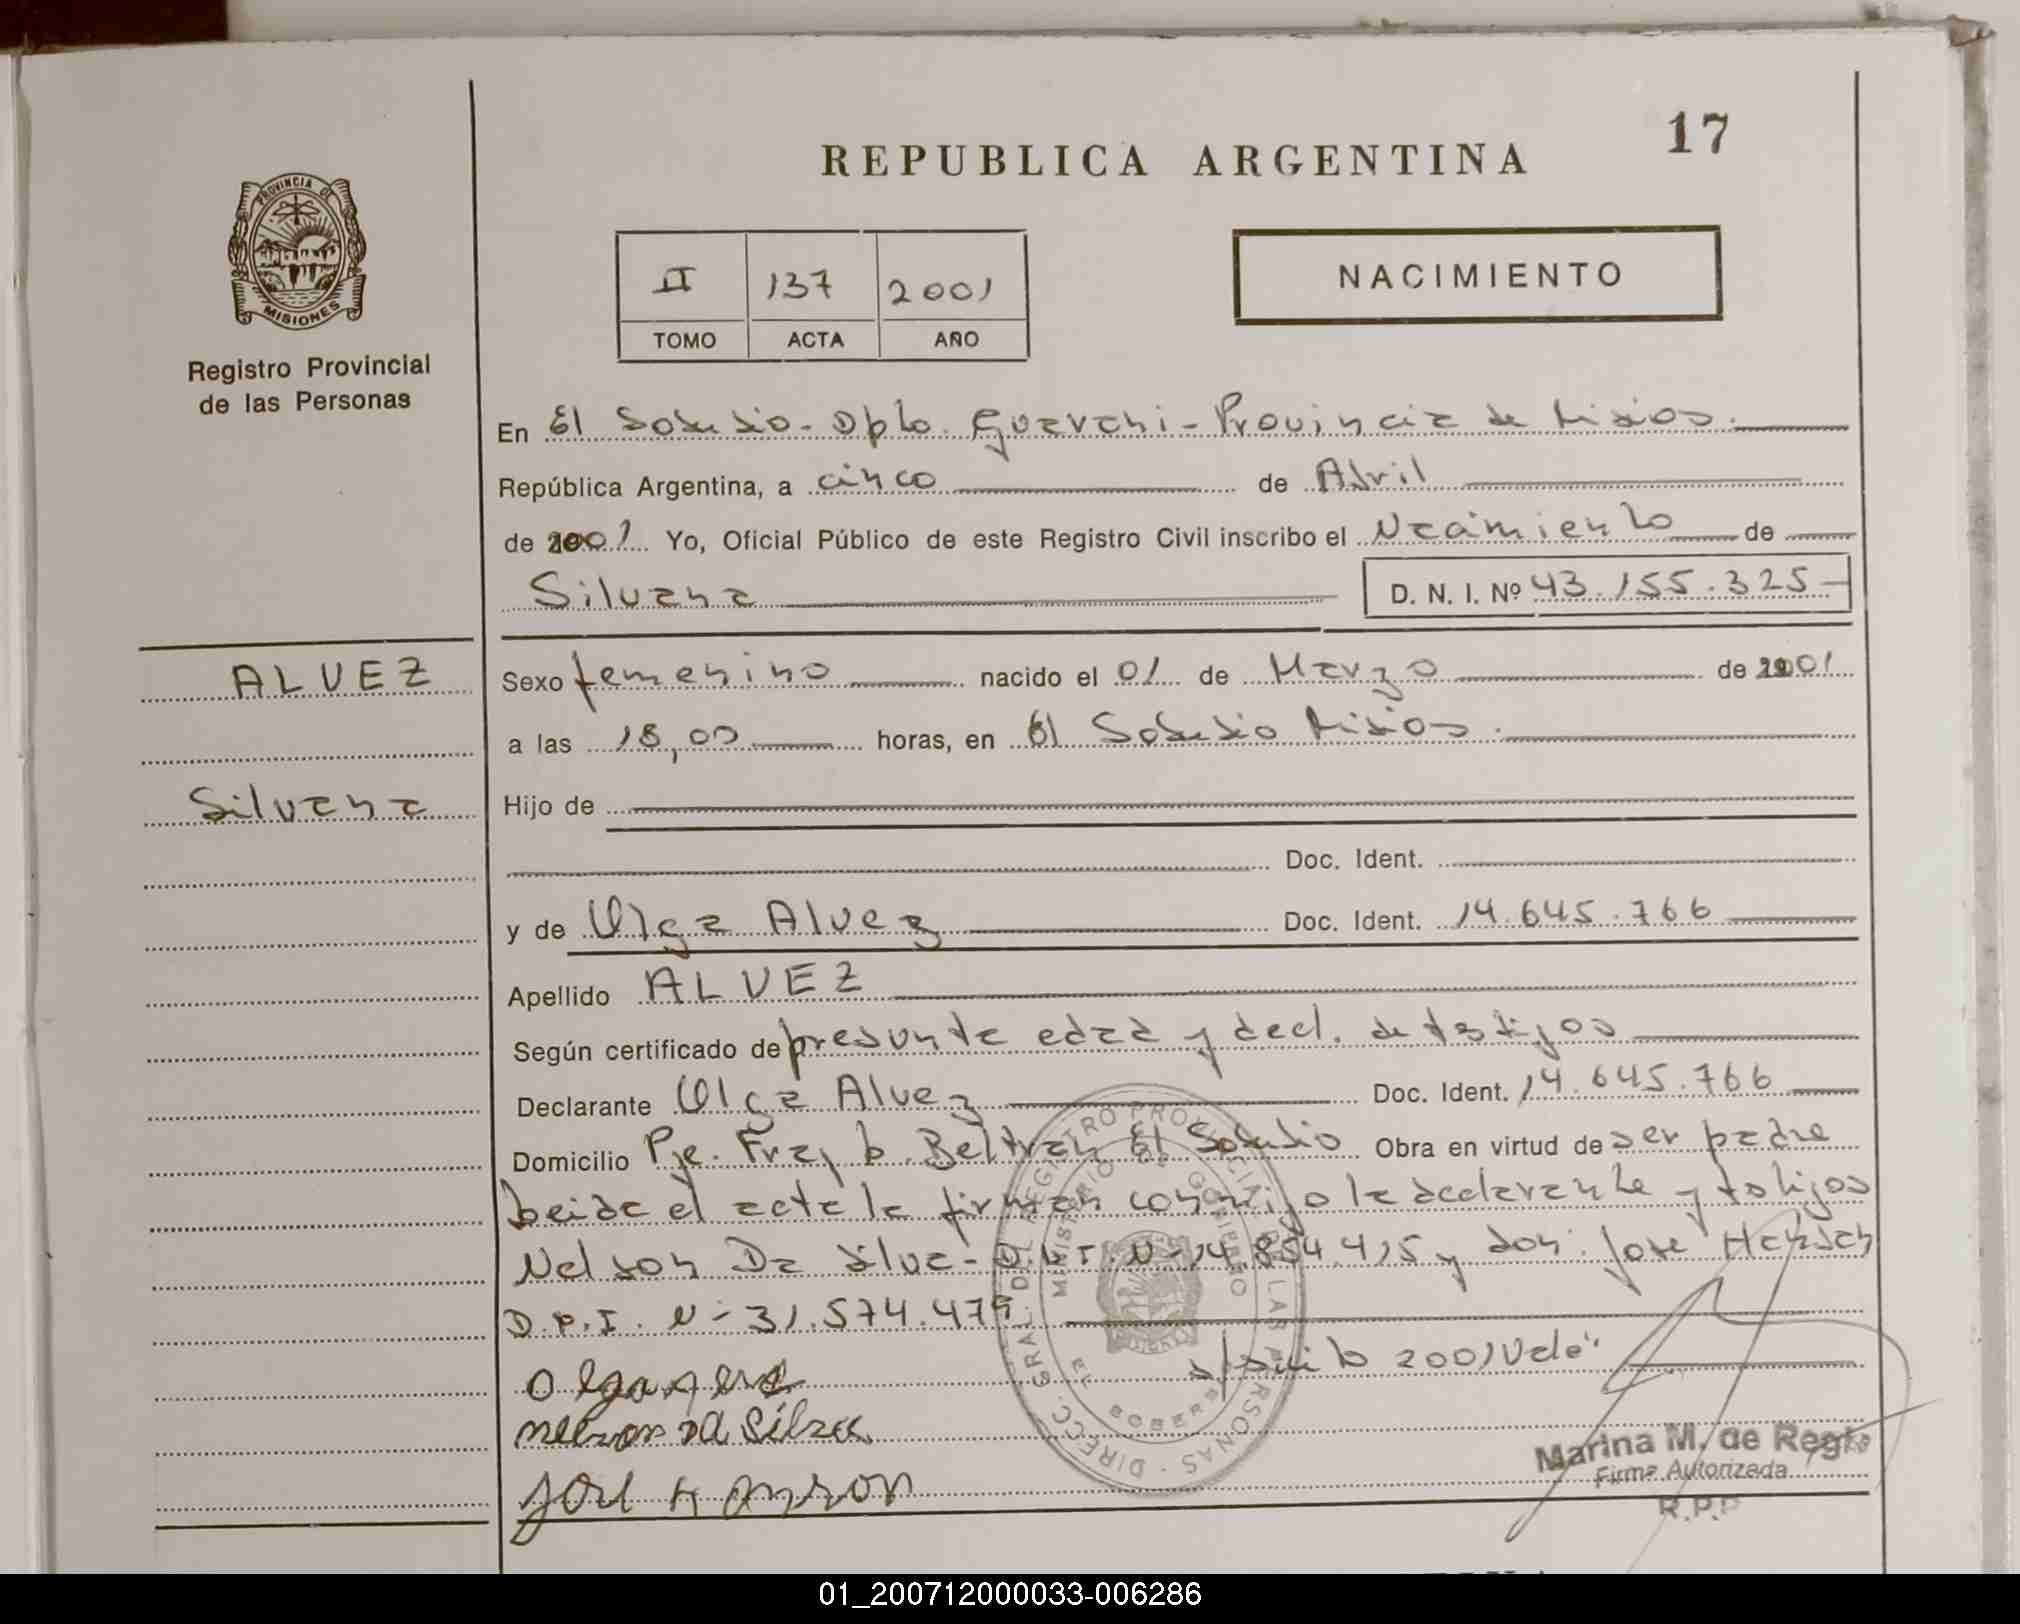 17
REPUBLICA ARGENTINA
PROVINCIA DE
MISIONES
Registro Provincial
de las Personas
II 137 2001
TOMO ACTA AÑO
NACIMIENTO
En El Soberbio - Dpto. Guarani - Provincia de Misiones.
República Argentina, a cinco de Abril
de 2001 Yo, Oficial Público de este Registro Civil inscribo el Nacimiento de
Silvana D. N. I. Nº 43.155.325
ALVEZ
Sexo femenino nacido el 01 de Marzo de 2001
a las 18,00 horas, en El Soberbio Misiones.
Silvana
Hijo de
Doc. Ident.
y de Olga Alvez Doc. Ident. 14.645.766
Apellido ALVEZ
Según certificado de presunta edad y decl. de testigos
Declarante Olga Alvez Doc. Ident. 14.645.766
Domicilio Pje. Fray b. Beltran El Soberbio Obra en virtud de ser padre
Leida el acta la firman conmigo la declarante y testigos
Nelson Da Silva - D.N.I. N- 14.854.415 y don Jose Hansen
D.N.I. N- 31.574.479
s/ 2001 Vale"
nelson da Silva
DIRECC. GRAL. DEL REGISTRO PROVINCIAL DE LAS PERSONAS
MINISTERIO DE GOBIERNO
EL SOBERBIO
Marina M. de Regio
Firma Autorizada
R.P.P
01_200712000033-006286